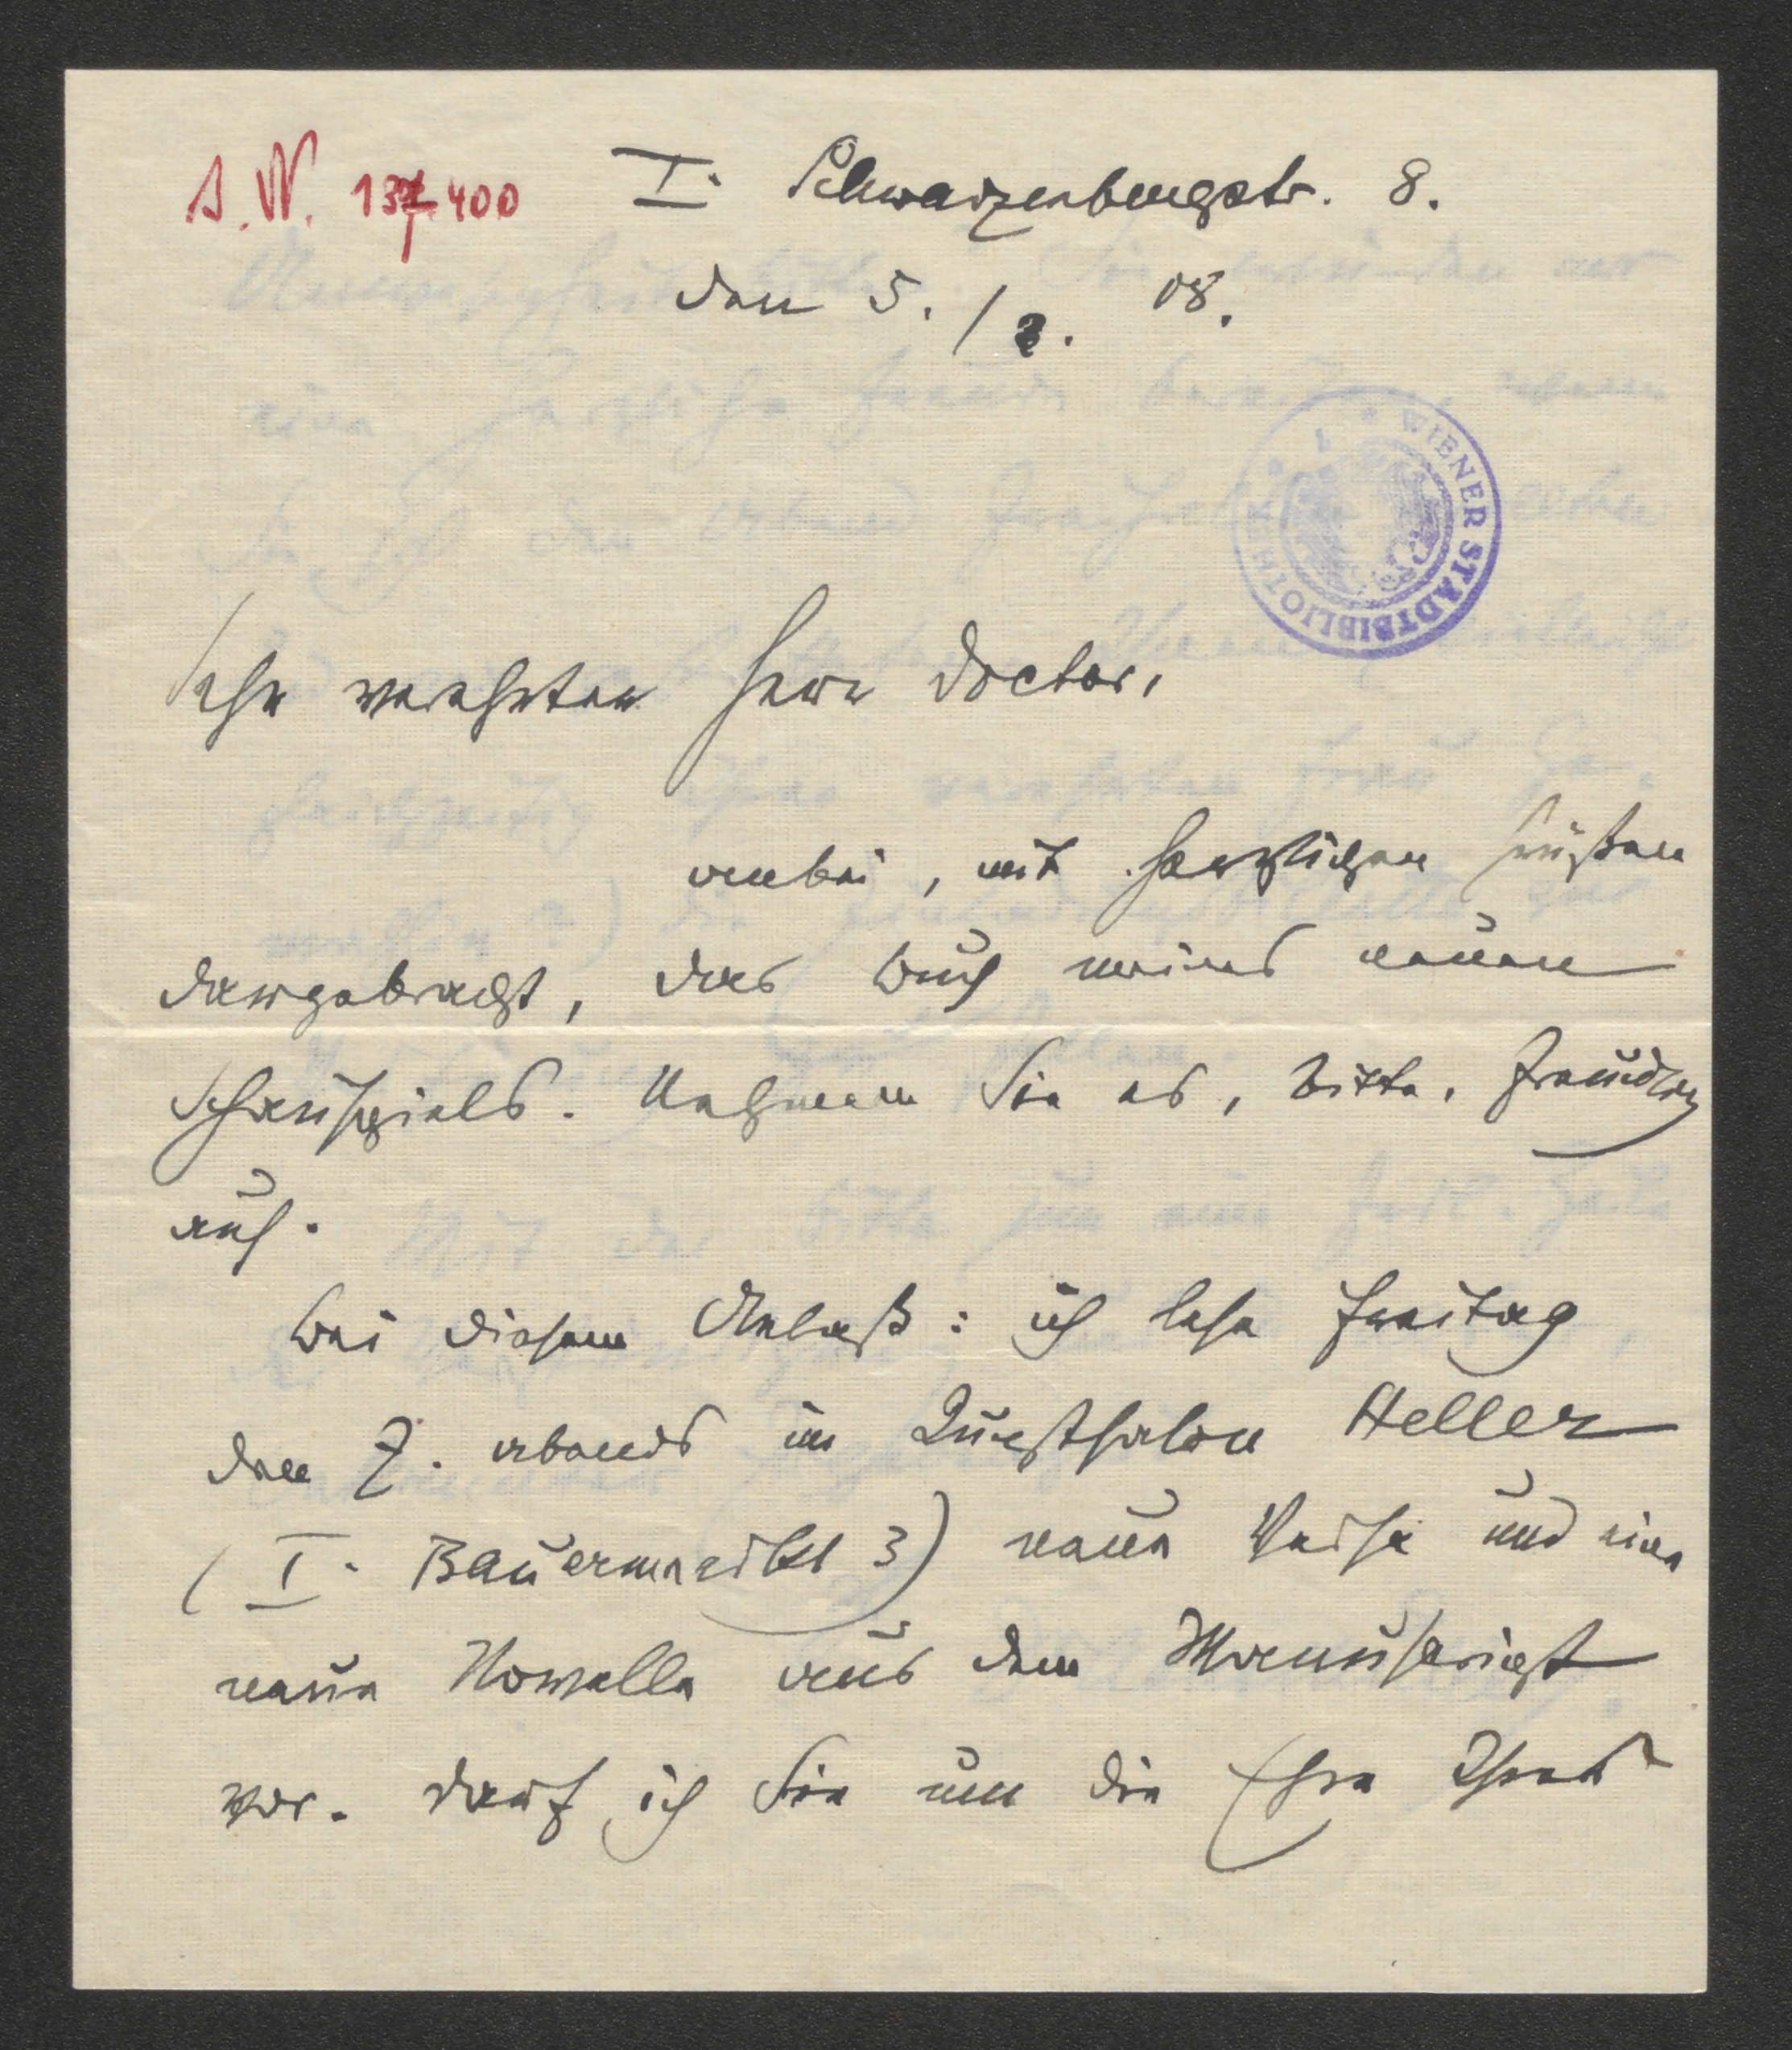 I. N. 137400
I. Schwarzenbergstr. 8.
den 5. / 2. 08.
WIENER STADTBIBLIOTHEK
Sehr verehrter Herr Doctor,
anbei, mit herzlichen Grüßen
dargebracht, das Buch meines neuen
Schauspiels. Nehmen Sie es, bitte, freundlich
auf.
Bei diesem Anlaß: ich lese Freitag
den 7. abends im Kunstsalon Heller
(I. Bauernmarkt 3) neue Verse und eine
neue Novelle aus dem Manuscript
vor. Darf ich Sie um die Ehre Ihres